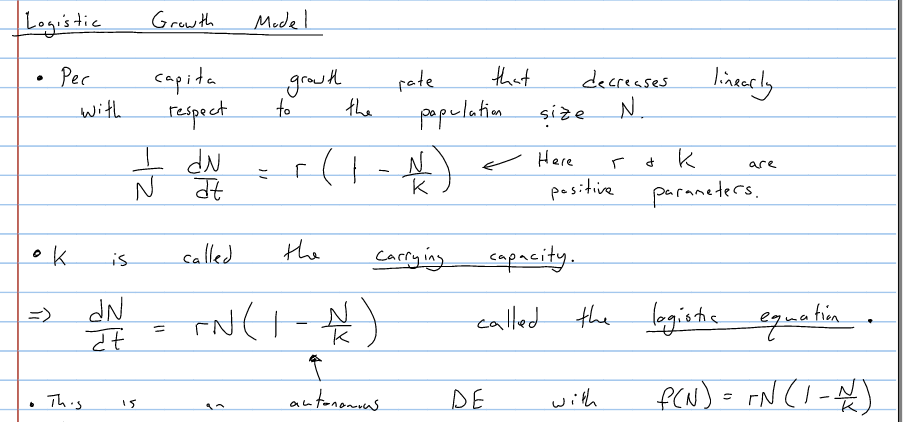 Logistic Growth Model
• Per capita growth rate that decreases linearly
with respect to the population size N.
1/N dN/dt = r(1 - N/K) ← Here r & K are
positive parameters.
• K is called the carrying capacity.
⇒ dN/dt = rN(1 - N/K) called the logistic equation.
• This is an autonomous DE with f(N) = rN(1 - N/K)